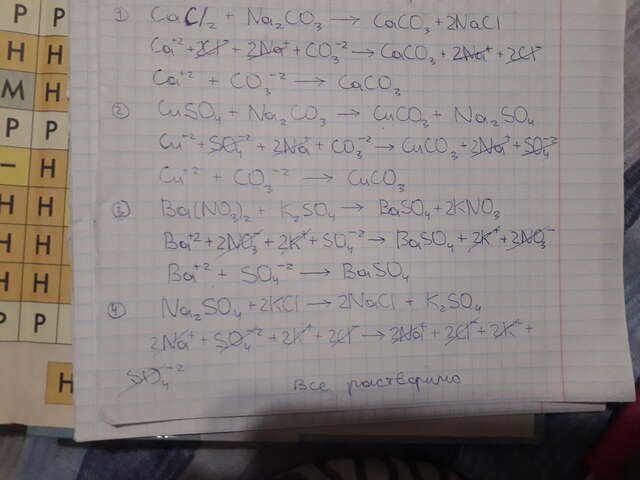 ① CaCl₂ + Na₂CO₃ → CaCO₃ + 2NaCl
Ca⁺² + 2Cl⁻ + 2Na⁺ + CO₃⁻² → CaCO₃ + 2Na⁺ + 2Cl⁻
Ca⁺² + CO₃⁻² → CaCO₃
② CuSO₄ + Na₂CO₃ → CuCO₃ + Na₂SO₄
Cu⁺² + SO₄⁻² + 2Na⁺ + CO₃⁻² → CuCO₃ + 2Na⁺ + SO₄⁻²
Cu⁺² + CO₃⁻² → CuCO₃
③ Ba(NO₃)₂ + K₂SO₄ → BaSO₄ + 2KNO₃
Ba⁺² + 2NO₃⁻ + 2K⁺ + SO₄⁻² → BaSO₄ + 2K⁺ + 2NO₃⁻
Ba⁺² + SO₄⁻² → BaSO₄
④ Na₂SO₄ + 2KCl → 2NaCl + K₂SO₄
2Na⁺ + SO₄⁻² + 2K⁺ + 2Cl⁻ → 2Na⁺ + 2Cl⁻ + 2K⁺ +
SO₄⁻²
Все растворимо
Р Н Н Н Н – Р М Н Р
Р Н Н Н Н Р Р М Н Р
Н